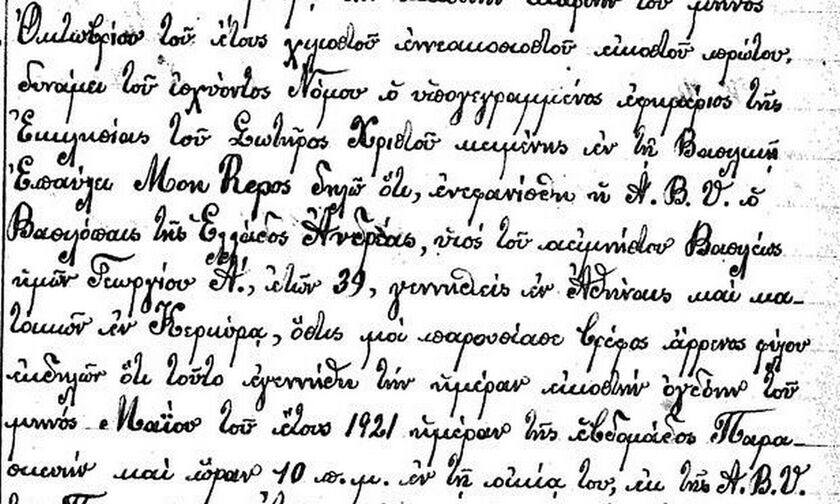 του μηνὸς
Ὀκτωβρίου τοῦ ἔτους χιλιοστοῦ ἐννεακοσιοστοῦ εἰκοστοῦ πρώτου,
δυνάμει τοῦ ἰσχύοντος Νόμου ὁ ὑπογεγραμμένος ἐφημέριος τῆς
Ἐκκλησίας τοῦ Σωτῆρος Χριστοῦ κειμένης ἐν τῇ Βασιλικῇ
Ἐπαύλει Mon Repos δηλῶ ὅτι, ἐνεφανίσθη ἡ Α. Β. Υ. ὁ
Βασιλόπαις τῆς Ἑλλάδος Ἀνδρέας, υἱός τοῦ ἀειμνήστου Βασιλέως
ἡμῶν Γεωργίου Α΄., ἐτῶν 39, γεννηθεὶς ἐν Ἀθήναις καὶ κα-
τοικῶν ἐν Κερκύρᾳ, ὅστις μοὶ παρουσίασε βρέφος ἄρρενος φύλου
ἐκδηλῶν ὅτι τοῦτο ἐγεννήθη τὴν ἡμέραν εἰκοστὴν ὀγδόην τοῦ
μηνός Μαΐου τοῦ ἔτους 1921 ἡμέραν τῆς ἑβδομάδος Παρα-
σκευὴν καὶ ὥραν 10 π.μ. ἐν τῇ οἰκίᾳ του, ἐκ τῆς Α.Β.Υ.